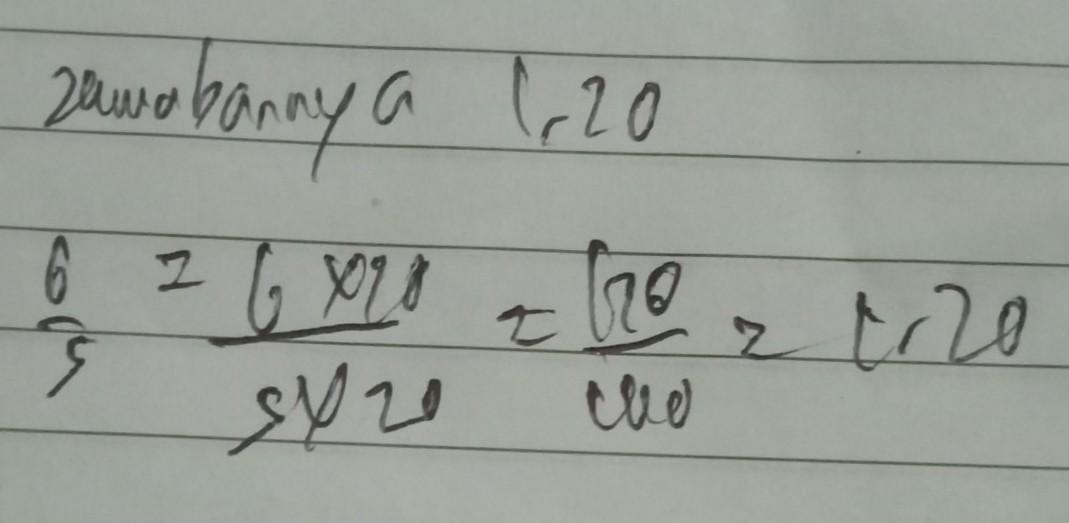 Jawabannya 1,20
6/5 = 6 x 20 / 5 x 20 = 120/100 = 1,20